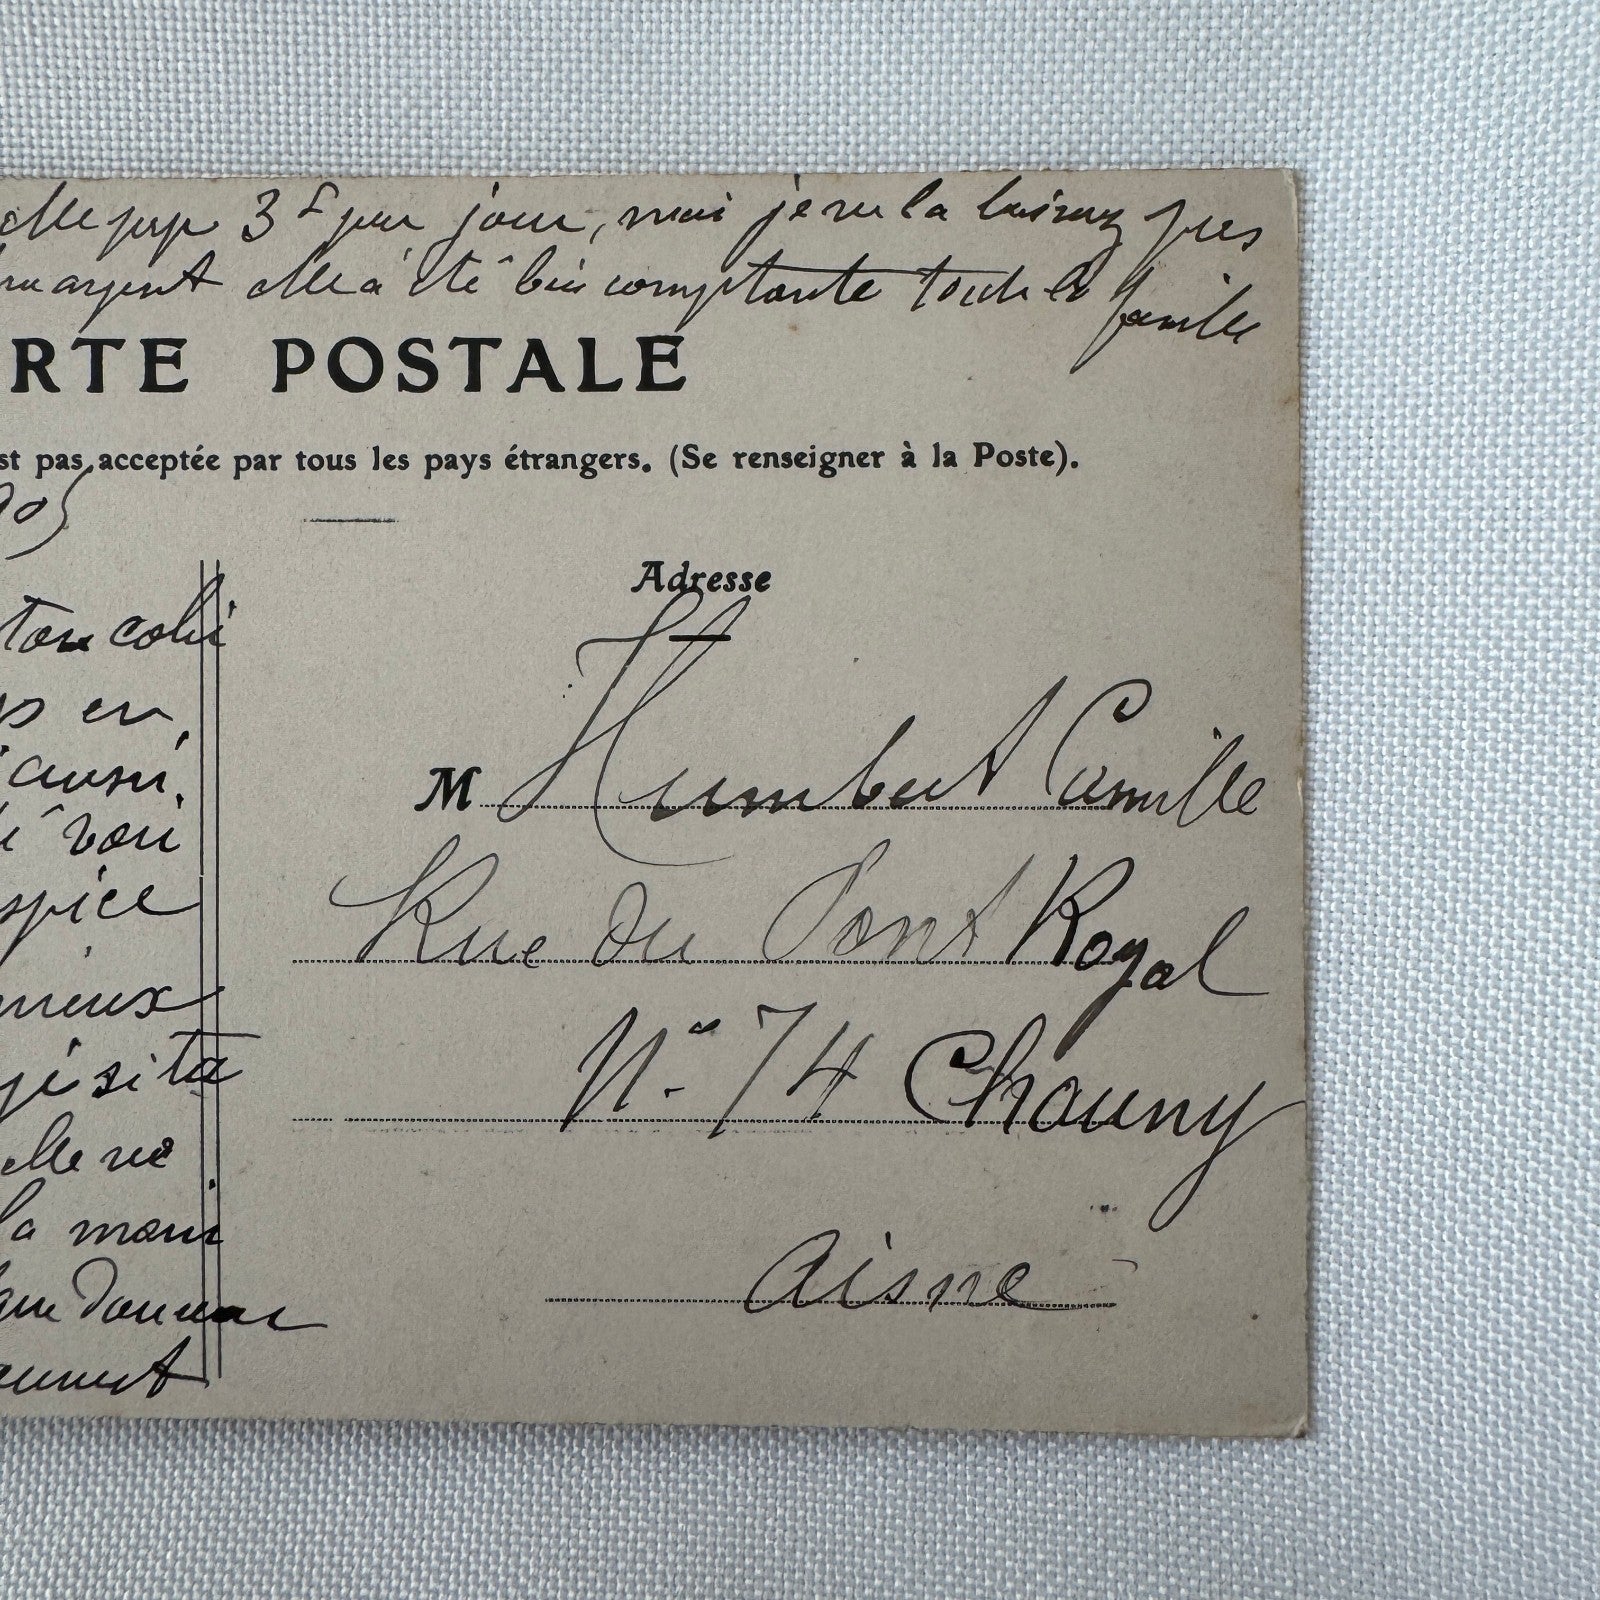 elle paye 3f par jour, mai je ne la laisserez pas
argent elle a été bien comptante toute la famille
RTE POSTALE
st pas acceptée par tous les pays étrangers. (Se renseigner à la Poste).
905
Adresse
ton coli
M Humbert Camille
en
aussi
voir
Rue du Pont Royal
spice
mieux
N° 74 Chauny
si ta
elle ne
la mani
Aisne
donner